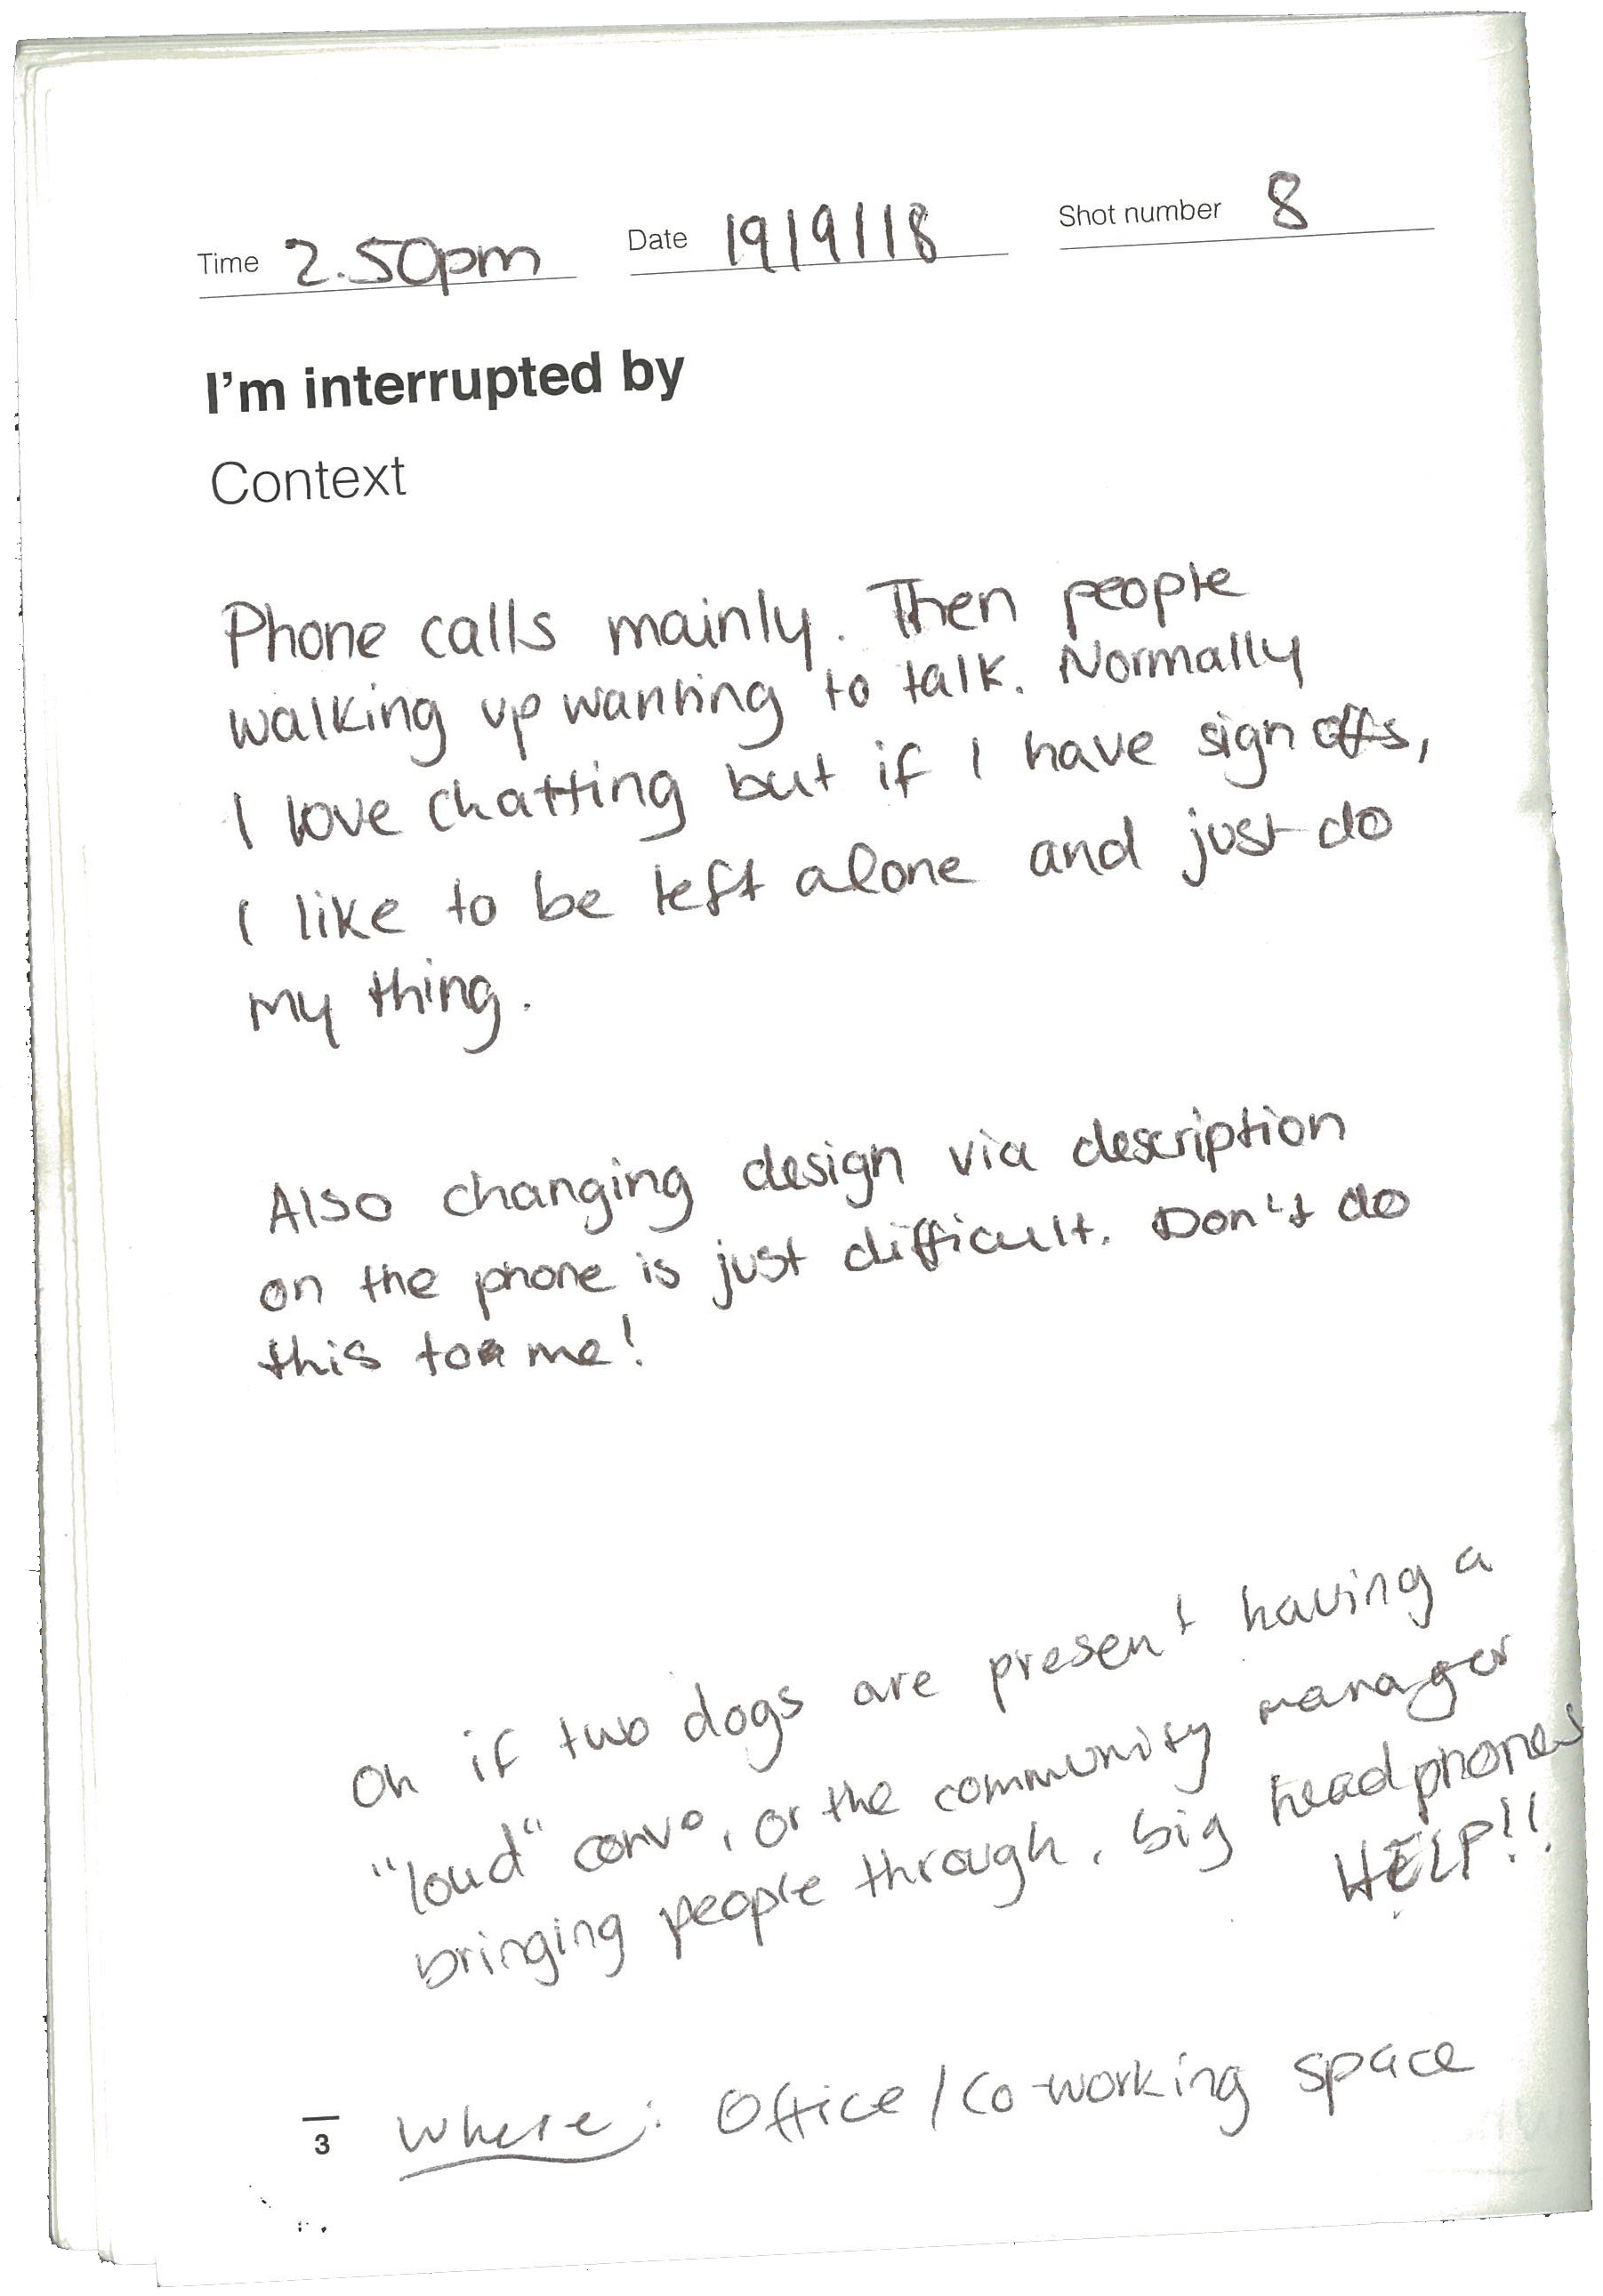 Time 2.50pm Date 19/9/18 Shot number 8
I'm interrupted by
Context
Phone calls mainly. Then people
walking up wanting to talk. Normally
I love chatting but if I have sign offs,
I like to be left alone and just do
my thing.
Also changing design via description
on the phone is just difficult. Don't do
this to me!
Oh if two dogs are present having a
"loud" convo, or the community manager
bringing people through. big headphones
HELP!!
3 Where: Office/Co-working space